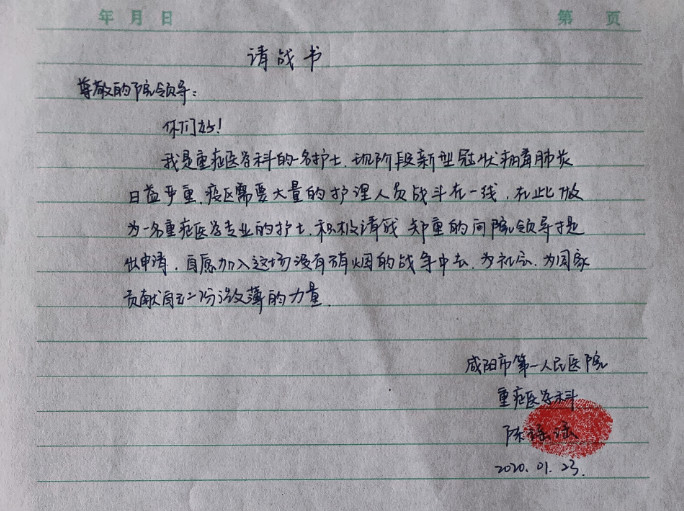 年 月 日 第 页
请战书
尊敬的院领导：
你们好！
我是重症医学科的一名护士，现阶段新型冠状病毒肺炎
日益严重，疫区需要大量的护理人员战斗在一线，在此我
为一名重症医学专业的护士，积极请战，郑重的向院领导提
出申请，自愿加入这场没有硝烟的战争中去，为社会，为国家
贡献自己一份微薄的力量．
咸阳市第一人民医院
重症医学科
陈
2020．01．23．